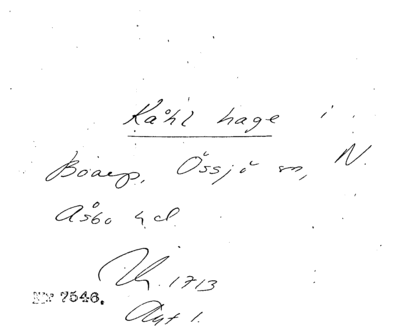 Kåhl hage i
Boarp, Össjö sn, N.
Åsbo hd
1713
No 7546.
Akt 1.